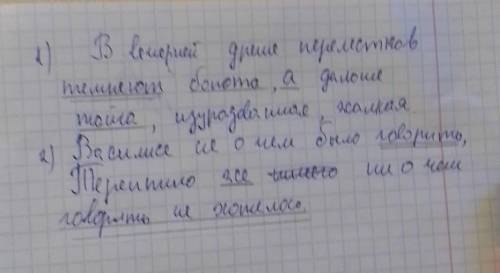 1) В вечерней дреме перелесков
темнеют болота, а дальше
тайга, изуродованная, жалкая
2) Василисе не о чем было говорить,
Терентию же ни о чем
говорить не хотелось.